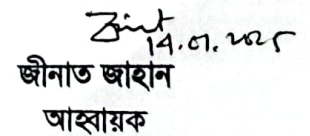 14.01.2025
জীনাত জাহান
আহবায়ক